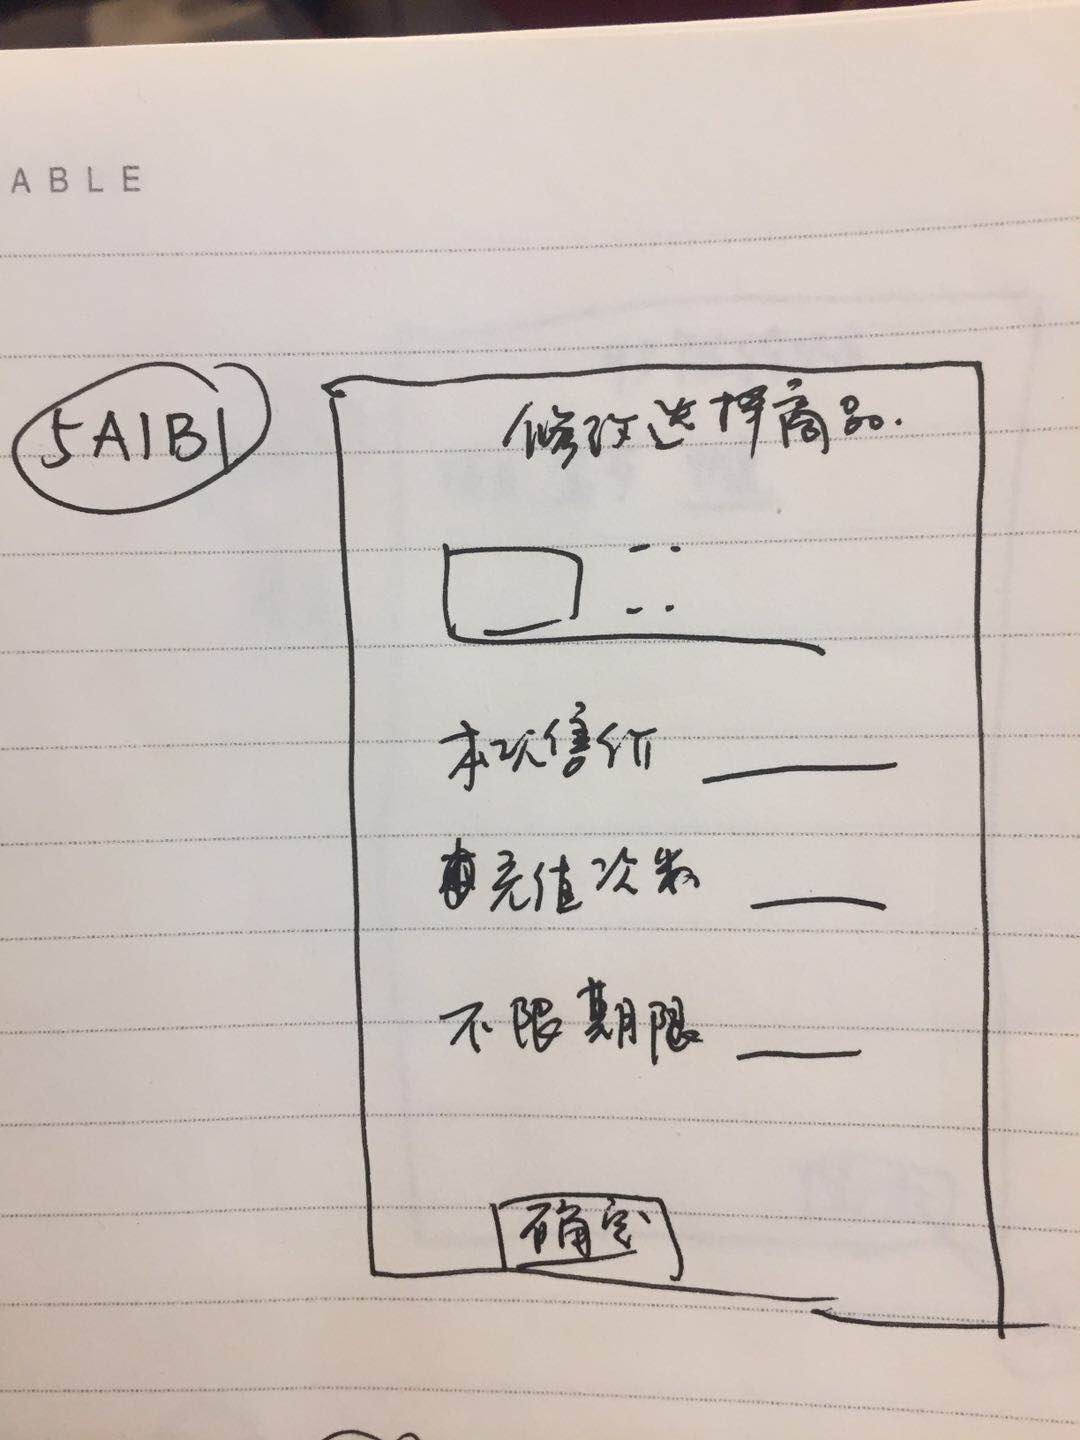 ABLE
5A1B1
修改选择商品.
本次售价
充值次数
不限期限
确定